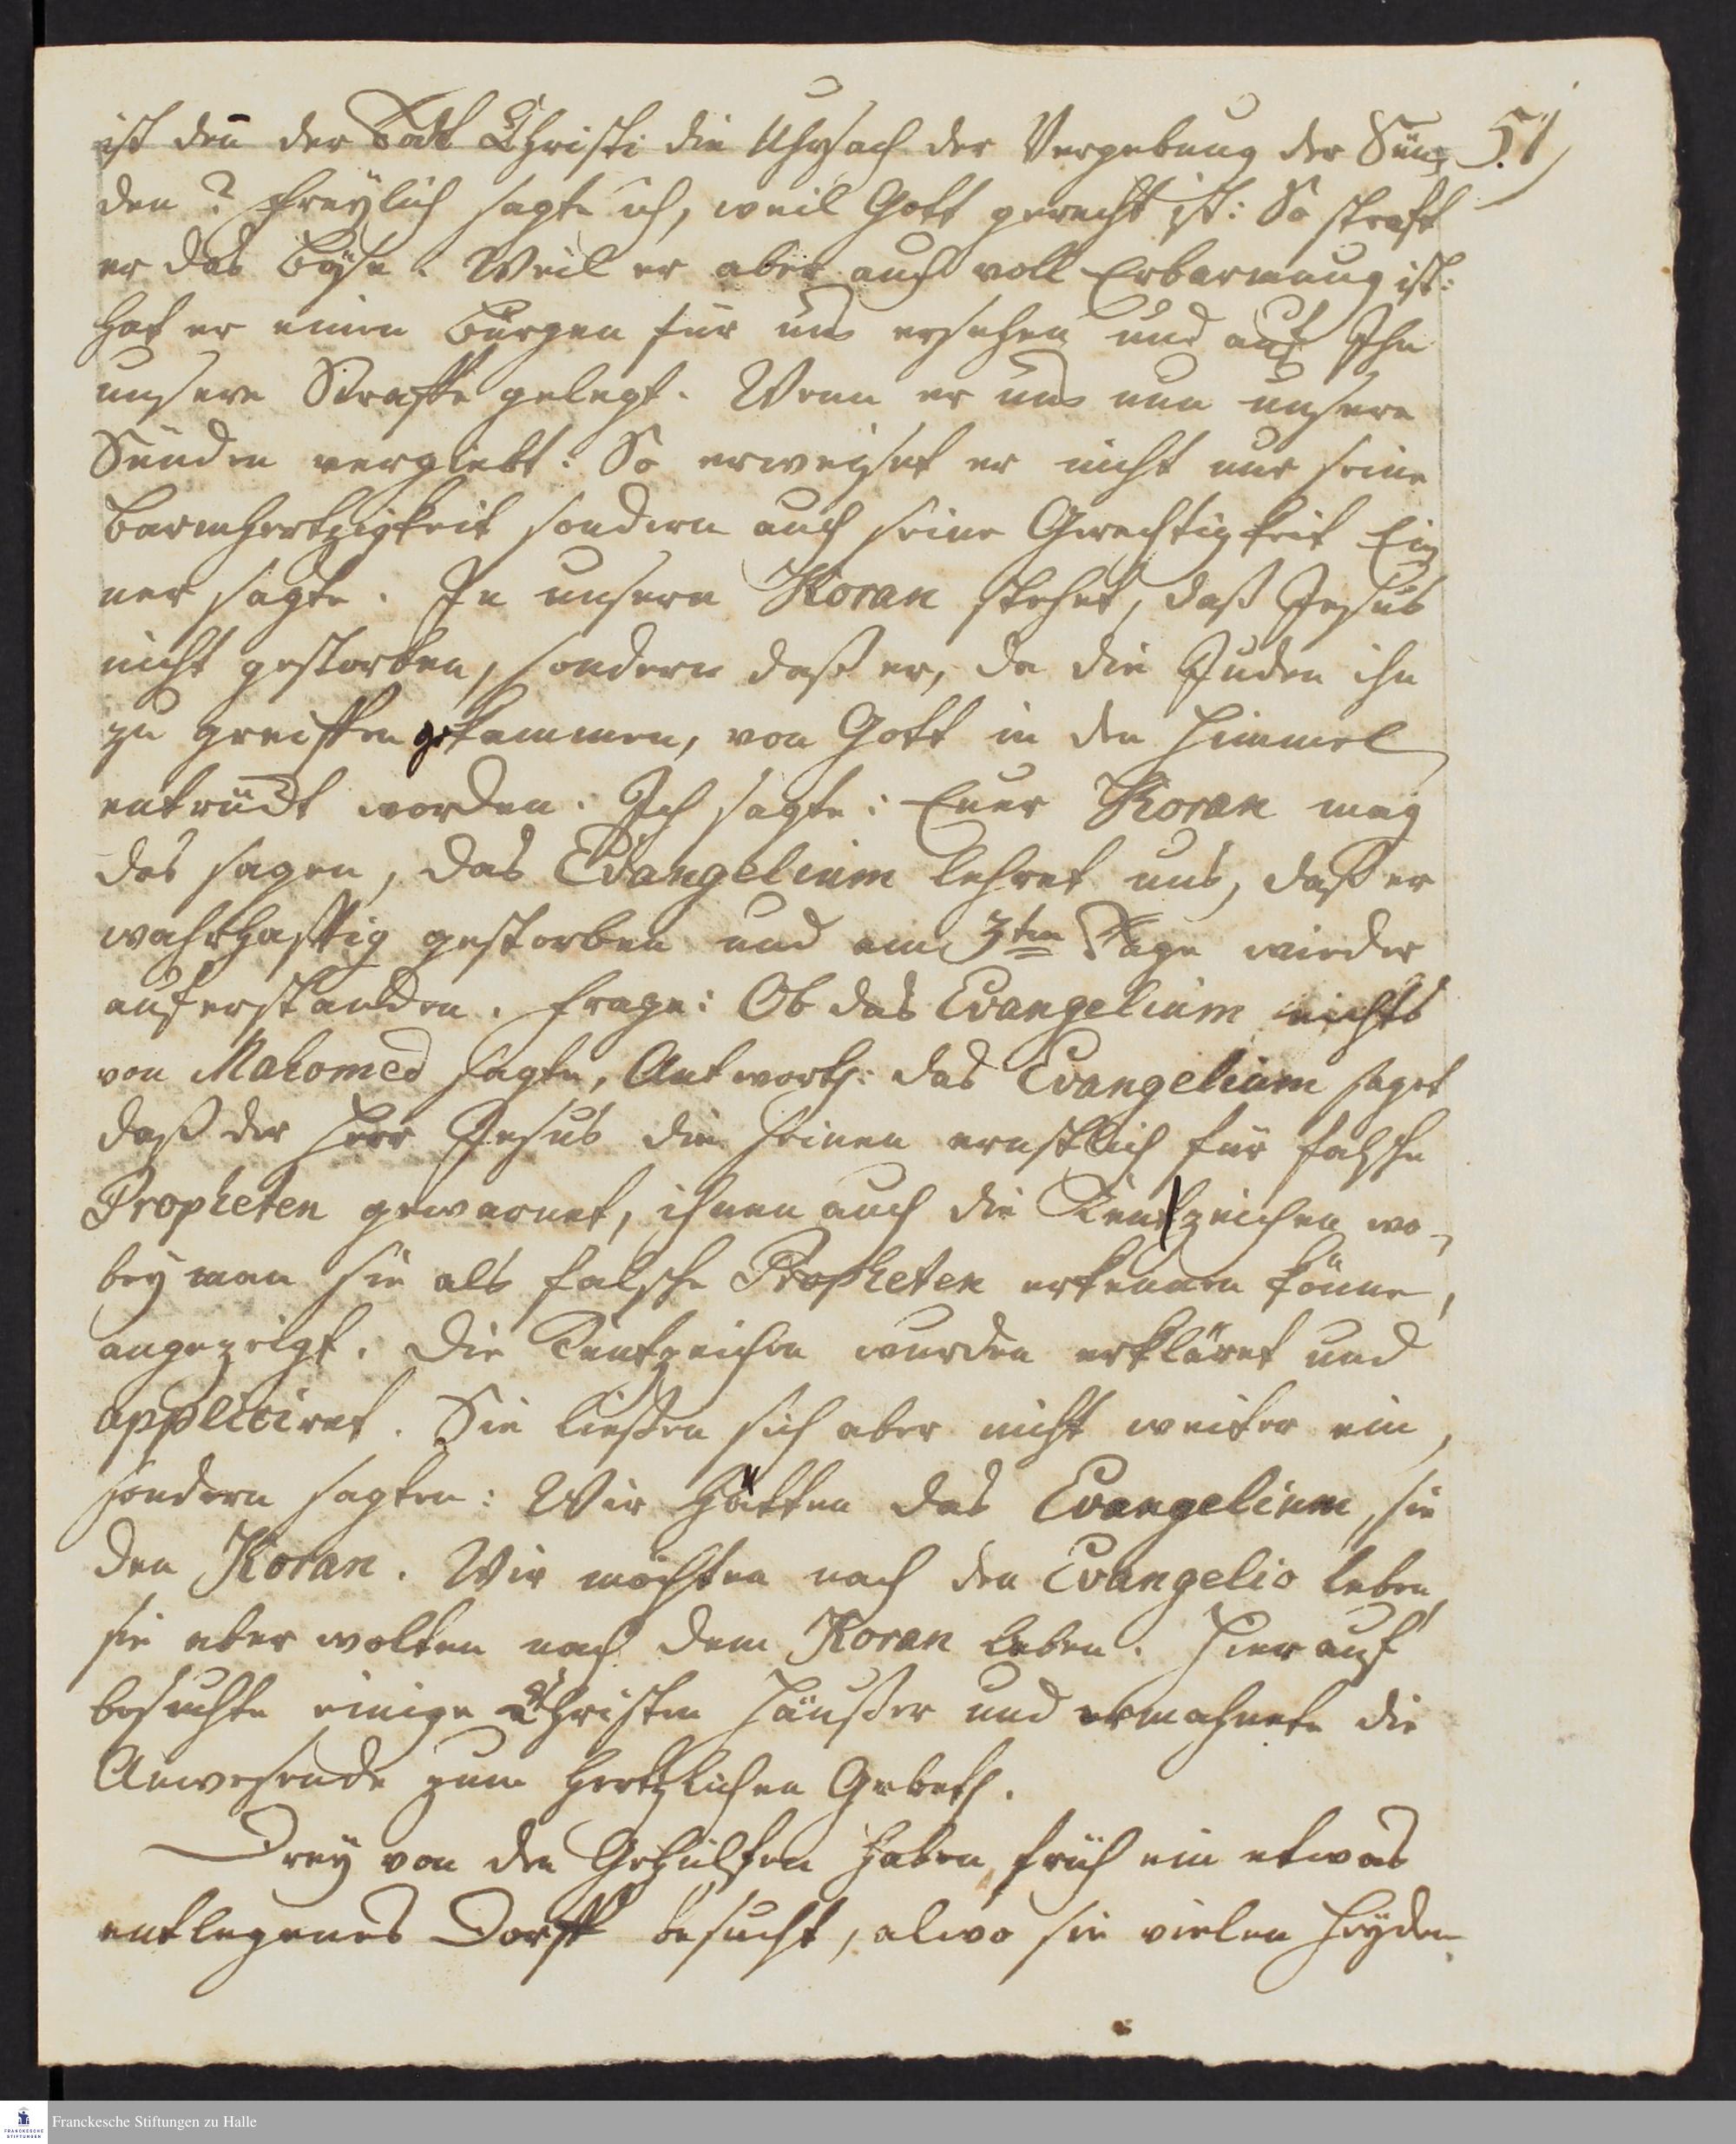 ist deñ der Todt Christi die Uhrsach der Vergebung der Sün- 51
den? Freylich sagte ich, weil Gott gerecht ist: So straft
er das Böse. Weil er aber auch voll Erbarmung ist:
hat er einen Bürgen für uns ersehen und auf Ihn
unsere Straffe gelegt. Wenn er uns nun unsere
Sünden vergiebt: So erweiset er nicht nur seine
Barmhertzigkeit sondern auch seine Gerechtigkeit Ei-
ner sagte. In unsern Koran stehet, daß Jesus
nicht gestorben, sondern daß er, da die Juden ihn
zu greiffen gekommen, von Gott in den Himmel
entrückt worden. Ich sagte: Euer Koran mag
das sagen, das Evangelium lehret uns, daß er
wahrhafftig gestorben und am 3ten Tage wieder
auferstanden. Frage: Ob das Evangelium nichts
von Mahomed sagte, Antworth: das Evangelium saget
daß der Herr Jesus die seinen ernstlich für falsche
Propheten gewarnet, ihnen auch die Kentzeichen wo-
bey man sie als falsche Propheten erkennen könne,
angezeigt. Die Kentzeichen wurden erkläret und
appliciret. Sie ließen sich aber nicht weiter ein,
sondern sagten: Wir hätten das Evangelium, sie
den Koran. Wir möchten nach den Evangelio leben,
sie aber wolten nach dem Koran leben. Hierauf
besuchte einige Christen Häuser und ermahnete die
Anwesende zum hertzlichen Gebeth.
Drey von den Gehülfen haben früh ein etwas
entlegenes Dorff besucht, alwo sie vielen Heyden
Franckesche Stiftungen zu Halle
FRANCKESCHE
STIFTUNGEN